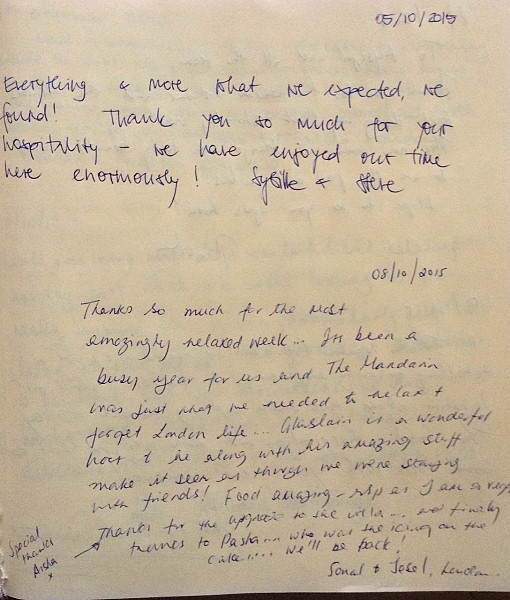 05/10/2015
Everything & more what we expected, we
found! Thank you so much for your
hospitality - we have enjoyed our time
here enormously! Sybille & Steve
08/10/2015
Thanks so much for the most
amazingly relaxed week... Its been a
busy year for us and The Mandarin
was just what we needed to relax &
forget London life... Ghislain is a wonderful
host & he along with his amazing staff
make it seem as though we were staying
with friends! Food amazing - esp as I am a veg
Thanks for the upgrade to the villa... and finally
thanks to Pasha... who was the icing on the
cake..... We'll be back!
Sonal & Josel, London.
Special
thanks
Aisha
x